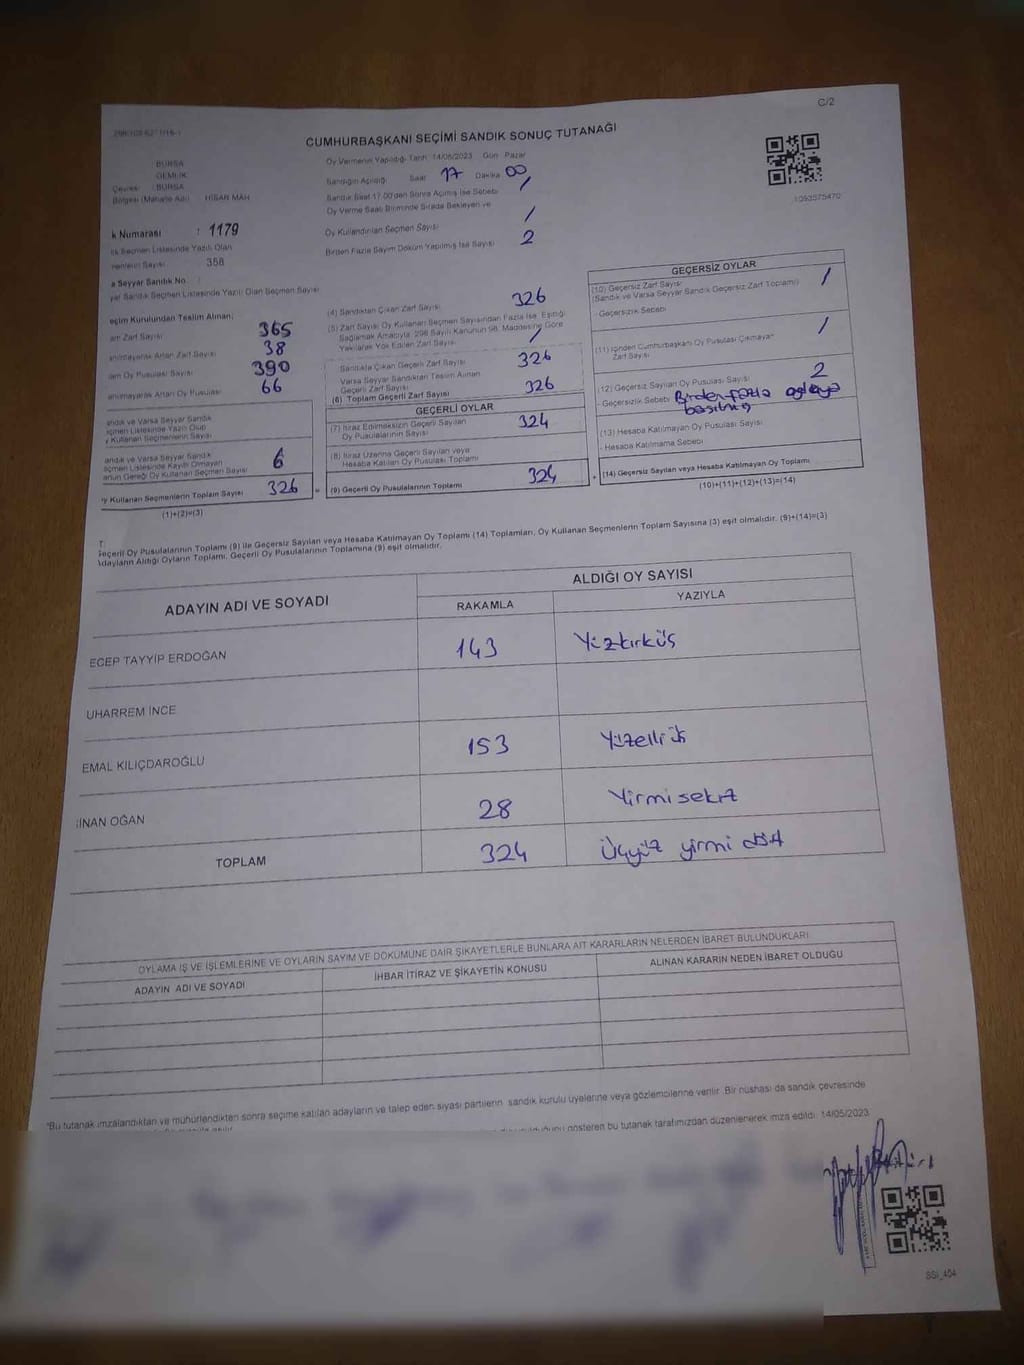 C/2
CUMHURBAŞKANI SEÇİMİ SANDIK SONUÇ TUTANAĞI
BURSA
GEMLİK
Çevresi : BURSA
Bölgesi (Mahalle Adı) HİSAR MAH
k Numarası : 1179
Seçmen Listesinde Yazılı Olan
Sayısı 358
a Seyyar Sandık No :
yar Sandık Seçmen Listesinde Yazılı Olan Seçmen Sayısı
Oy Vermenin Yapıldığı Tarih 14/05/2023 Gün Pazar
Sandığın Açıldığı Saat 17 Dakika 00
Sandık Saat 17.00'den Sonra Açılmış İse Sebebi /
Oy Verme Saati Bitiminde Sırada Bekleyen ve
Oy Kullandırılan Seçmen Sayısı /
Birden Fazla Sayım Döküm Yapılmış İse Sayısı 2
1093575470
eçim Kurulundan Teslim Alınan;
am Zarf Sayısı 365
anılmayarak Artan Zarf Sayısı 38
am Oy Pusulası Sayısı 390
anılmayarak Artan Oy Pusulası 66
andık ve Varsa Seyyar Sandık
eçmen Listesinde Yazılı Olup
y Kullanan Seçmenlerin Sayısı
andık ve Varsa Seyyar Sandık
eçmen Listesinde Kayıtlı Olmayan
anun Gereği Oy Kullanan Seçmen Sayısı 6
y Kullanan Seçmenlerin Toplam Sayısı 326
(1)+(2)=(3)
(4) Sandıktan Çıkan Zarf Sayısı 326
(5) Zarf Sayısı Oy Kullanan Seçmen Sayısından Fazla İse, Eşitliği
Sağlamak Amacıyla, 298 Sayılı Kanunun 98. Maddesine Göre
Yakılarak Yok Edilen Zarf Sayısı /
Sandıkta Çıkan Geçerli Zarf Sayısı 326
Varsa Seyyar Sandıktan Teslim Alınan
Geçerli Zarf Sayısı
(6) Toplam Geçerli Zarf Sayısı 326
GEÇERLİ OYLAR
(7) İtiraz Edilmeksizin Geçerli Sayılan
Oy Pusulalarının Sayısı 324
(8) İtiraz Üzerine Geçerli Sayılan veya
Hesaba Katılan Oy Pusulası Toplamı
(9) Geçerli Oy Pusulalarının Toplamı 324
GEÇERSİZ OYLAR
(10) Geçersiz Zarf Sayısı
(Sandık ve Varsa Seyyar Sandık Geçersiz Zarf Toplamı) /
- Geçersizlik Sebebi
(11) İçinden Cumhurbaşkanı Oy Pusulası Çıkmayan
Zarf Sayısı /
(12) Geçersiz Sayılan Oy Pusulası Sayısı 2
- Geçersizlik Sebebi Birden fazla
basılmış
(13) Hesaba Katılmayan Oy Pusulası Sayısı
- Hesaba Katılmama Sebebi
(14) Geçersiz Sayılan veya Hesaba Katılmayan Oy Toplamı
(10)+(11)+(12)+(13)=(14)
T:
Geçerli Oy Pusulalarının Toplamı (9) ile Geçersiz Sayılan veya Hesaba Katılmayan Oy Toplamı (14) Toplamları, Oy Kullanan Seçmenlerin Toplam Sayısına (3) eşit olmalıdır. (9)+(14)=(3)
Adayların Aldığı Oyların Toplamı, Geçerli Oy Pusulalarının Toplamına (9) eşit olmalıdır.
ADAYIN ADI VE SOYADI ALDIĞI OY SAYISI
RAKAMLA YAZIYLA
ECEP TAYYİP ERDOĞAN 143 Yüzkırküç
UHARREM İNCE
EMAL KILIÇDAROĞLU 153 Yüzelliüç
İNAN OĞAN 28 Yirmisekiz
TOPLAM 324 Üçyüz yirmi dört
OYLAMA İŞ VE İŞLEMLERİNE VE OYLARIN SAYIM VE DÖKÜMÜNE DAİR ŞİKAYETLERLE BUNLARA AİT KARARLARIN NELERDEN İBARET BULUNDUKLARI
ADAYIN ADI VE SOYADI İHBAR İTİRAZ VE ŞİKAYETİN KONUSU ALINAN KARARIN NEDEN İBARET OLDUĞU
"Bu tutanak imzalandıktan ve mühürlendikten sonra seçime katılan adayların ve talep eden siyasi partilerin sandık kurulu üyelerine veya gözlemcilerine verilir. Bir nüshası da sandık çevresinde
gösteren bu tutanak tarafımızdan düzenlenerek imza edildi. 14/05/2023
SSİ_404